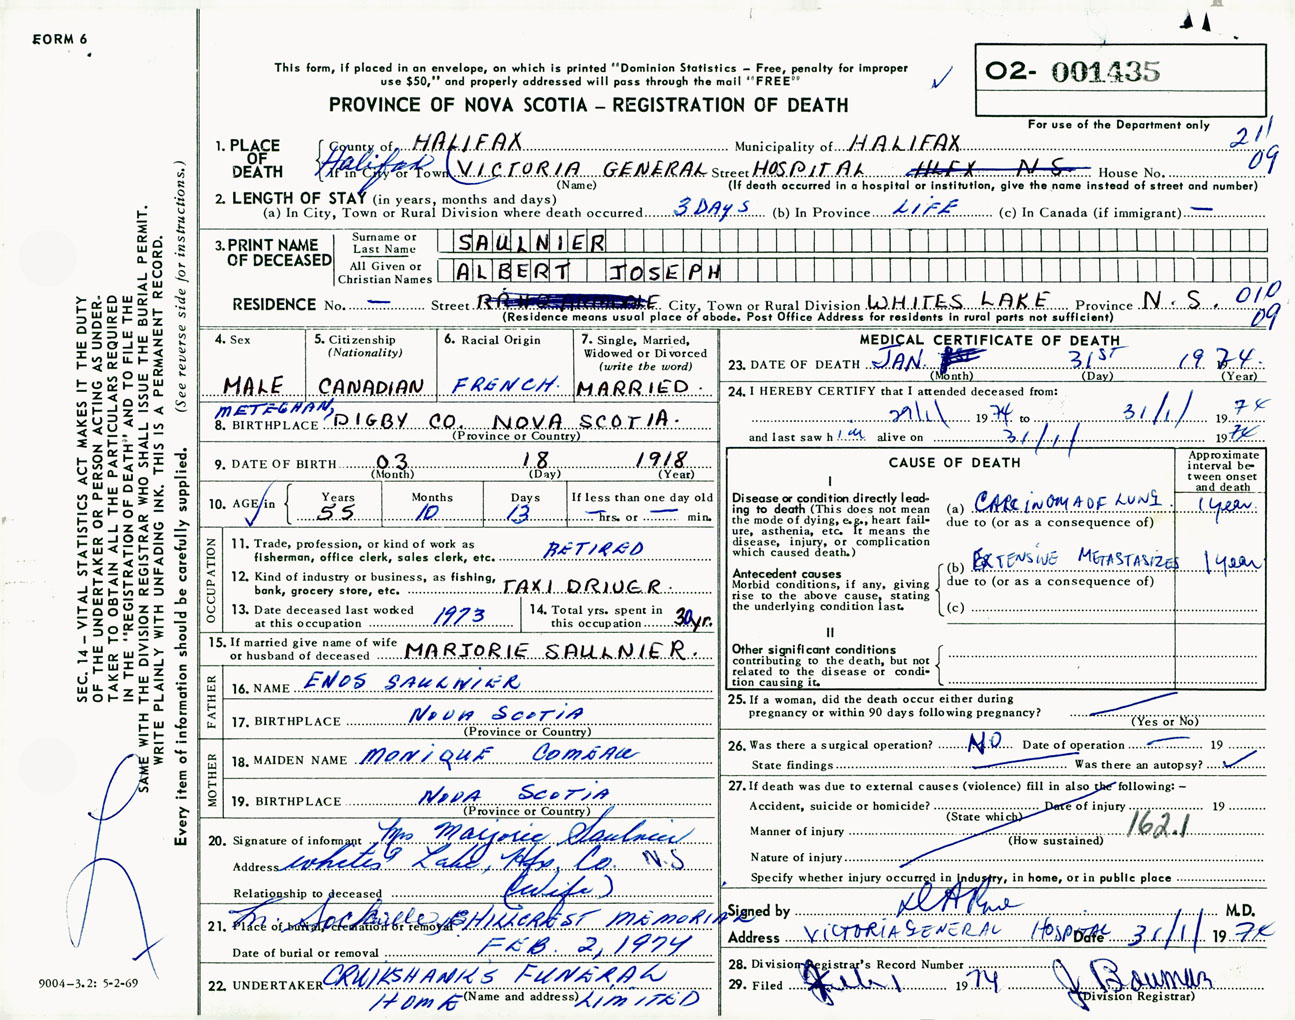 FORM 6
This form, if placed in an envelope, on which is printed "Dominion Statistics – Free, penalty for improper
use $50," and properly addressed will pass through the mail "FREE"
O2- 001435
PROVINCE OF NOVA SCOTIA – REGISTRATION OF DEATH
For use of the Department only
1. PLACE OF DEATH County of HALIFAX Municipality of HALIFAX 211
Halifax If in City or Town VICTORIA GENERAL Street HOSPITAL HLFX N S House No. 09
(Name) (If death occurred in a hospital or institution, give the name instead of street and number)
2. LENGTH OF STAY (in years, months and days)
(a) In City, Town or Rural Division where death occurred 3 DAYS (b) In Province LIFE (c) In Canada (if immigrant) —
3. PRINT NAME OF DECEASED Surname or Last Name SAULNIER
All Given or Christian Names ALBERT JOSEPH
RESIDENCE No. — Street City, Town or Rural Division WHITES LAKE Province N.S. 010
(Residence means usual place of abode. Post Office Address for residents in rural parts not sufficient) 09
4. Sex MALE
5. Citizenship (Nationality) CANADIAN
6. Racial Origin FRENCH.
7. Single, Married, Widowed or Divorced (write the word) MARRIED.
METEGHAN,
8. BIRTHPLACE DIGBY CO. NOVA SCOTIA.
(Province or Country)
9. DATE OF BIRTH 03 18 1918
(Month) (Day) (Year)
10. AGE in Years 55 Months 10 Days 13 If less than one day old — hrs. or — min.
OCCUPATION
11. Trade, profession, or kind of work as
fisherman, office clerk, sales clerk, etc. RETIRED
12. Kind of industry or business, as fishing,
bank, grocery store, etc. TAXI DRIVER.
13. Date deceased last worked
at this occupation 1973
14. Total yrs. spent in
this occupation 30 yr.
15. If married give name of wife
or husband of deceased MARJORIE SAULNIER.
FATHER
16. NAME ENOS SAULNIER
17. BIRTHPLACE NOVA SCOTIA
(Province or Country)
MOTHER
18. MAIDEN NAME MONIQUE COMEAU
19. BIRTHPLACE NOVA SCOTIA
(Province or Country)
20. Signature of informant Mrs Marjorie Saulnier
Address Whites Lake, Hfx. Co. N.S
Relationship to deceased (Wife)
21. Place of burial, cremation or removal Sackville HILLCREST MEMORIAL
Date of burial or removal FEB. 2, 1974
22. UNDERTAKER CRUIKSHANK'S FUNERAL
HOME (Name and address) LIMITED
MEDICAL CERTIFICATE OF DEATH
23. DATE OF DEATH JAN. 31ST 1974.
(Month) (Day) (Year)
24. I HEREBY CERTIFY that I attended deceased from:
29/1/ 1974 to 31/1/ 1974
and last saw him alive on 31/1/ 1974
CAUSE OF DEATH
Approximate interval between onset and death
I
Disease or condition directly leading to death (This does not mean the mode of dying, e.g., heart failure, asthenia, etc. It means the disease, injury, or complication which caused death.)
(a) CARCINOMA OF LUNG 1 year
due to (or as a consequence of)
Antecedent causes
Morbid conditions, if any, giving rise to the above cause, stating the underlying condition last.
(b) EXTENSIVE METASTASIZES 1 year
due to (or as a consequence of)
(c)
II
Other significant conditions
contributing to the death, but not related to the disease or condition causing it.
25. If a woman, did the death occur either during
pregnancy or within 90 days following pregnancy?
(Yes or No)
26. Was there a surgical operation? NO Date of operation — 19
State findings Was there an autopsy? ✓
27. If death was due to external causes (violence) fill in also the following: –
Accident, suicide or homicide? Date of injury 19
(State which)
Manner of injury 162.1
(How sustained)
Nature of injury
Specify whether injury occurred in industry, in home, or in public place
Signed by M.D.
Address VICTORIA GENERAL HOSPITAL Date 31/1/ 1974
28. Division Registrar's Record Number
29. Filed Feb 1 1974 J Bowman
(Division Registrar)
SEC. 14 – VITAL STATISTICS ACT MAKES IT THE DUTY
OF THE UNDERTAKER OR PERSON ACTING AS UNDERTAKER
TO OBTAIN ALL THE PARTICULARS REQUIRED
IN THE "REGISTRATION OF DEATH" AND TO FILE THE
SAME WITH THE DIVISION REGISTRAR WHO SHALL ISSUE THE BURIAL PERMIT.
WRITE PLAINLY WITH UNFADING INK. THIS IS A PERMANENT RECORD.
Every item of information should be carefully supplied. (See reverse side for instructions.)
9004-3.2: 5-2-69